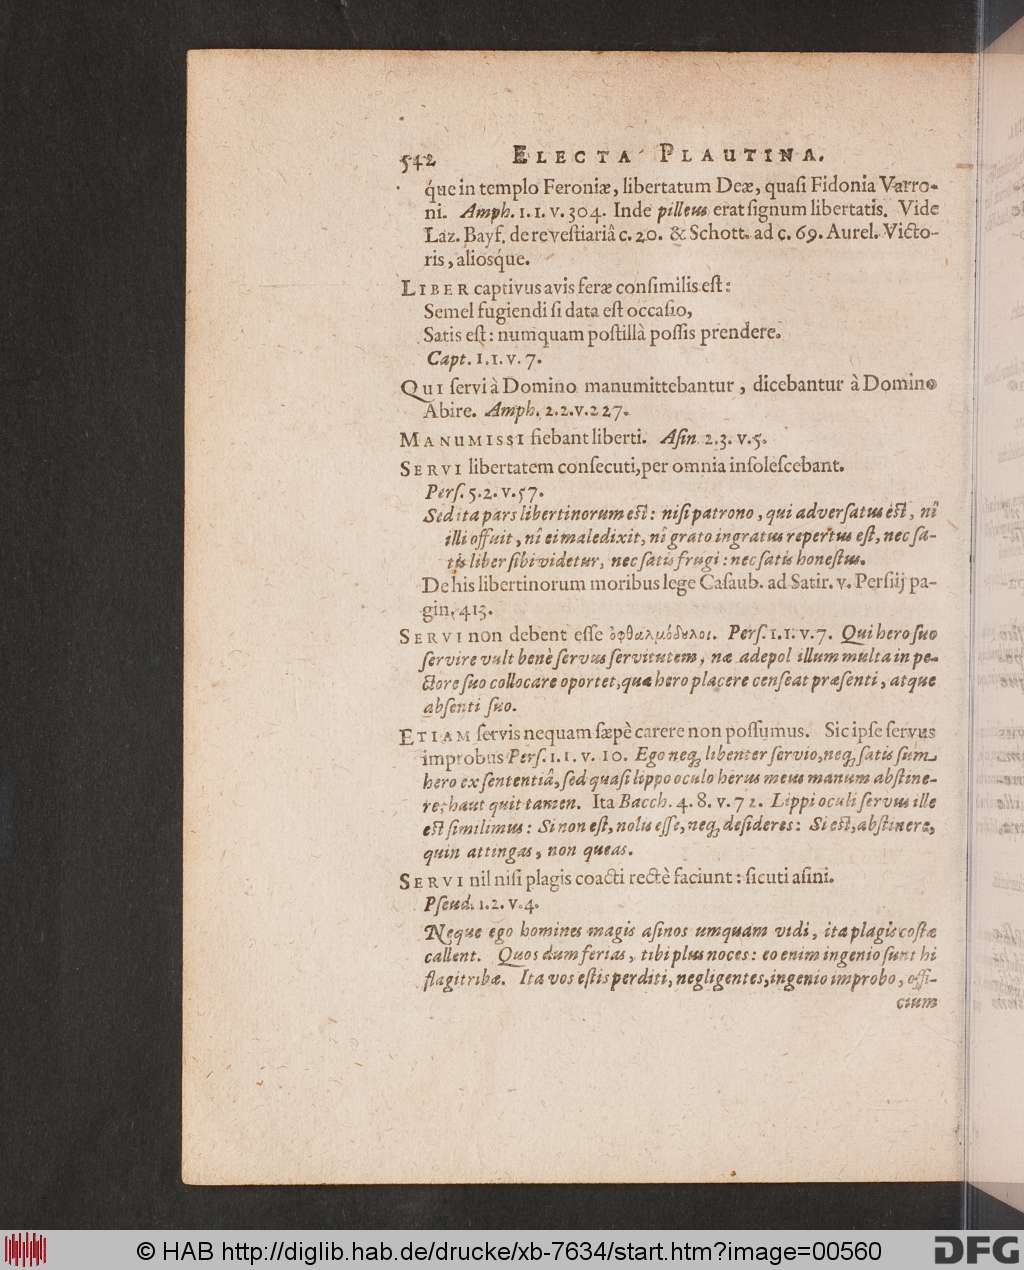 542 ELECTA PLAUTINA.
q́ue in templo Feroniæ, libertatum Deæ, quaſi Fidonia Varro-
ni. Amph. 1. 1. v. 304. Inde pilleus erat ſignum libertatis. Vide
Laz. Bayf. de reveſtiariâ c. 20. & Schott. ad c. 69. Aurel. Victo-
ris, aliosq́ue.
LIBER captivus avis feræ conſimilis eſt:
Semel fugiendi ſi data eſt occaſio,
Satis eſt: numquam poſtillà poſſis prendere.
Capt. 1. 1. v. 7.
QUI ſervi à Domino manumittebantur, dicebantur à Domino
Abire. Amph. 2. 2. v. 227.
MANUMISSI fiebant liberti. Aſin. 2. 3. v. 5.
SERVI libertatem conſecuti, per omnia inſoleſcebant.
Perſ. 5. 2. v. 57.
Sed ita pars libertinorum eſt: niſi patrono, qui adverſatus eſt, nî
illi offuit, nî ei maledixit, nî grato ingratus repertus eſt, nec ſa-
tis liber ſibi videtur, nec ſatis frugi: nec ſatis honeſtus.
De his libertinorum moribus lege Caſaub. ad Satir. v. Perſiij pa-
gin. 413.
SERVI non debent eſſe ὀφθαλμόδȣλοι. Perſ. 1. 1. v. 7. Qui hero ſuo
ſervire vult benè ſervus ſervitutem, næ adepol illum multa in pe-
ctore ſuo collocare oportet, quæ hero placere cenſeat præſenti, atque
abſenti ſuo.
ETIAM ſervis nequam ſæpè carere non poſſumus. Sic ipſe ſervus
improbus Perſ. 1. 1. v. 10. Ego neq; libenter ſervio, neq; ſatis ſum
hero ex ſententiâ, ſed quaſi lippo oculo herus meus manum abſtine-
re haut quit tamen. Ita Bacch. 4. 8. v. 72. Lippi oculi ſervus ille
eſt ſimilimus: Si non eſt, nolis eſſe, neq; deſideres: Si eſt, abſtinere,
quin attingas, non queas.
SERVI nil niſi plagis coacti rectè faciunt: ſicuti aſini.
Pſeud. 1. 2. v. 4.
Neque ego homines magis aſinos umquam vidi, ita plagis coſtæ
callent. Quos dum ferias, tibi plus noces: eo enim ingenio ſunt hi
flagitribæ. Ita vos eſtis perditi, negligentes, ingenio improbo, offi-
cium
© HAB http://diglib.hab.de/drucke/xb-7634/start.htm?image=00560
DFG